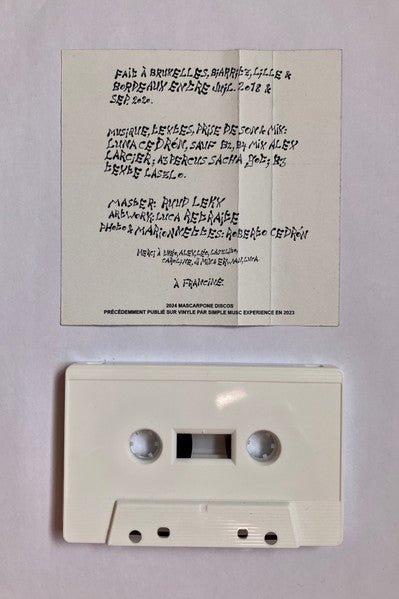 FAIT À BRUXELLES, BIARRITZ, LILLE &
BORDEAUX ENTRE JUIL. 2018 &
SEP. 2020.
MUSIQUE, TEXTES, PRISE DE SON & MIX:
LUNA CEDRÓN, SAUF B2, B4 MIX ALEX
LARCIER; A2 PERCUS SACHA
TEXTE LASZLO.
MASTER: RUUD LEKX
ARTWORK: LUCA RETRAITE
PHOTO & MARIONNETTES: ROBERTO CEDRÓN
MERCI À ALEX, LÉO, LASZLO,
CAROLINE, ERWAN, LUCA.
À FRANCINE.
2024 MASCARPONE DISCOS
PRÉCÉDEMMENT PUBLIÉ SUR VINYLE PAR SIMPLE MUSC EXPERIENCE EN 2023